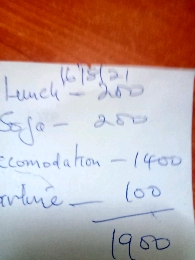 16/8/21
Lunch - 200
Soja - 200
ccomodation - 1400
- 100
1900